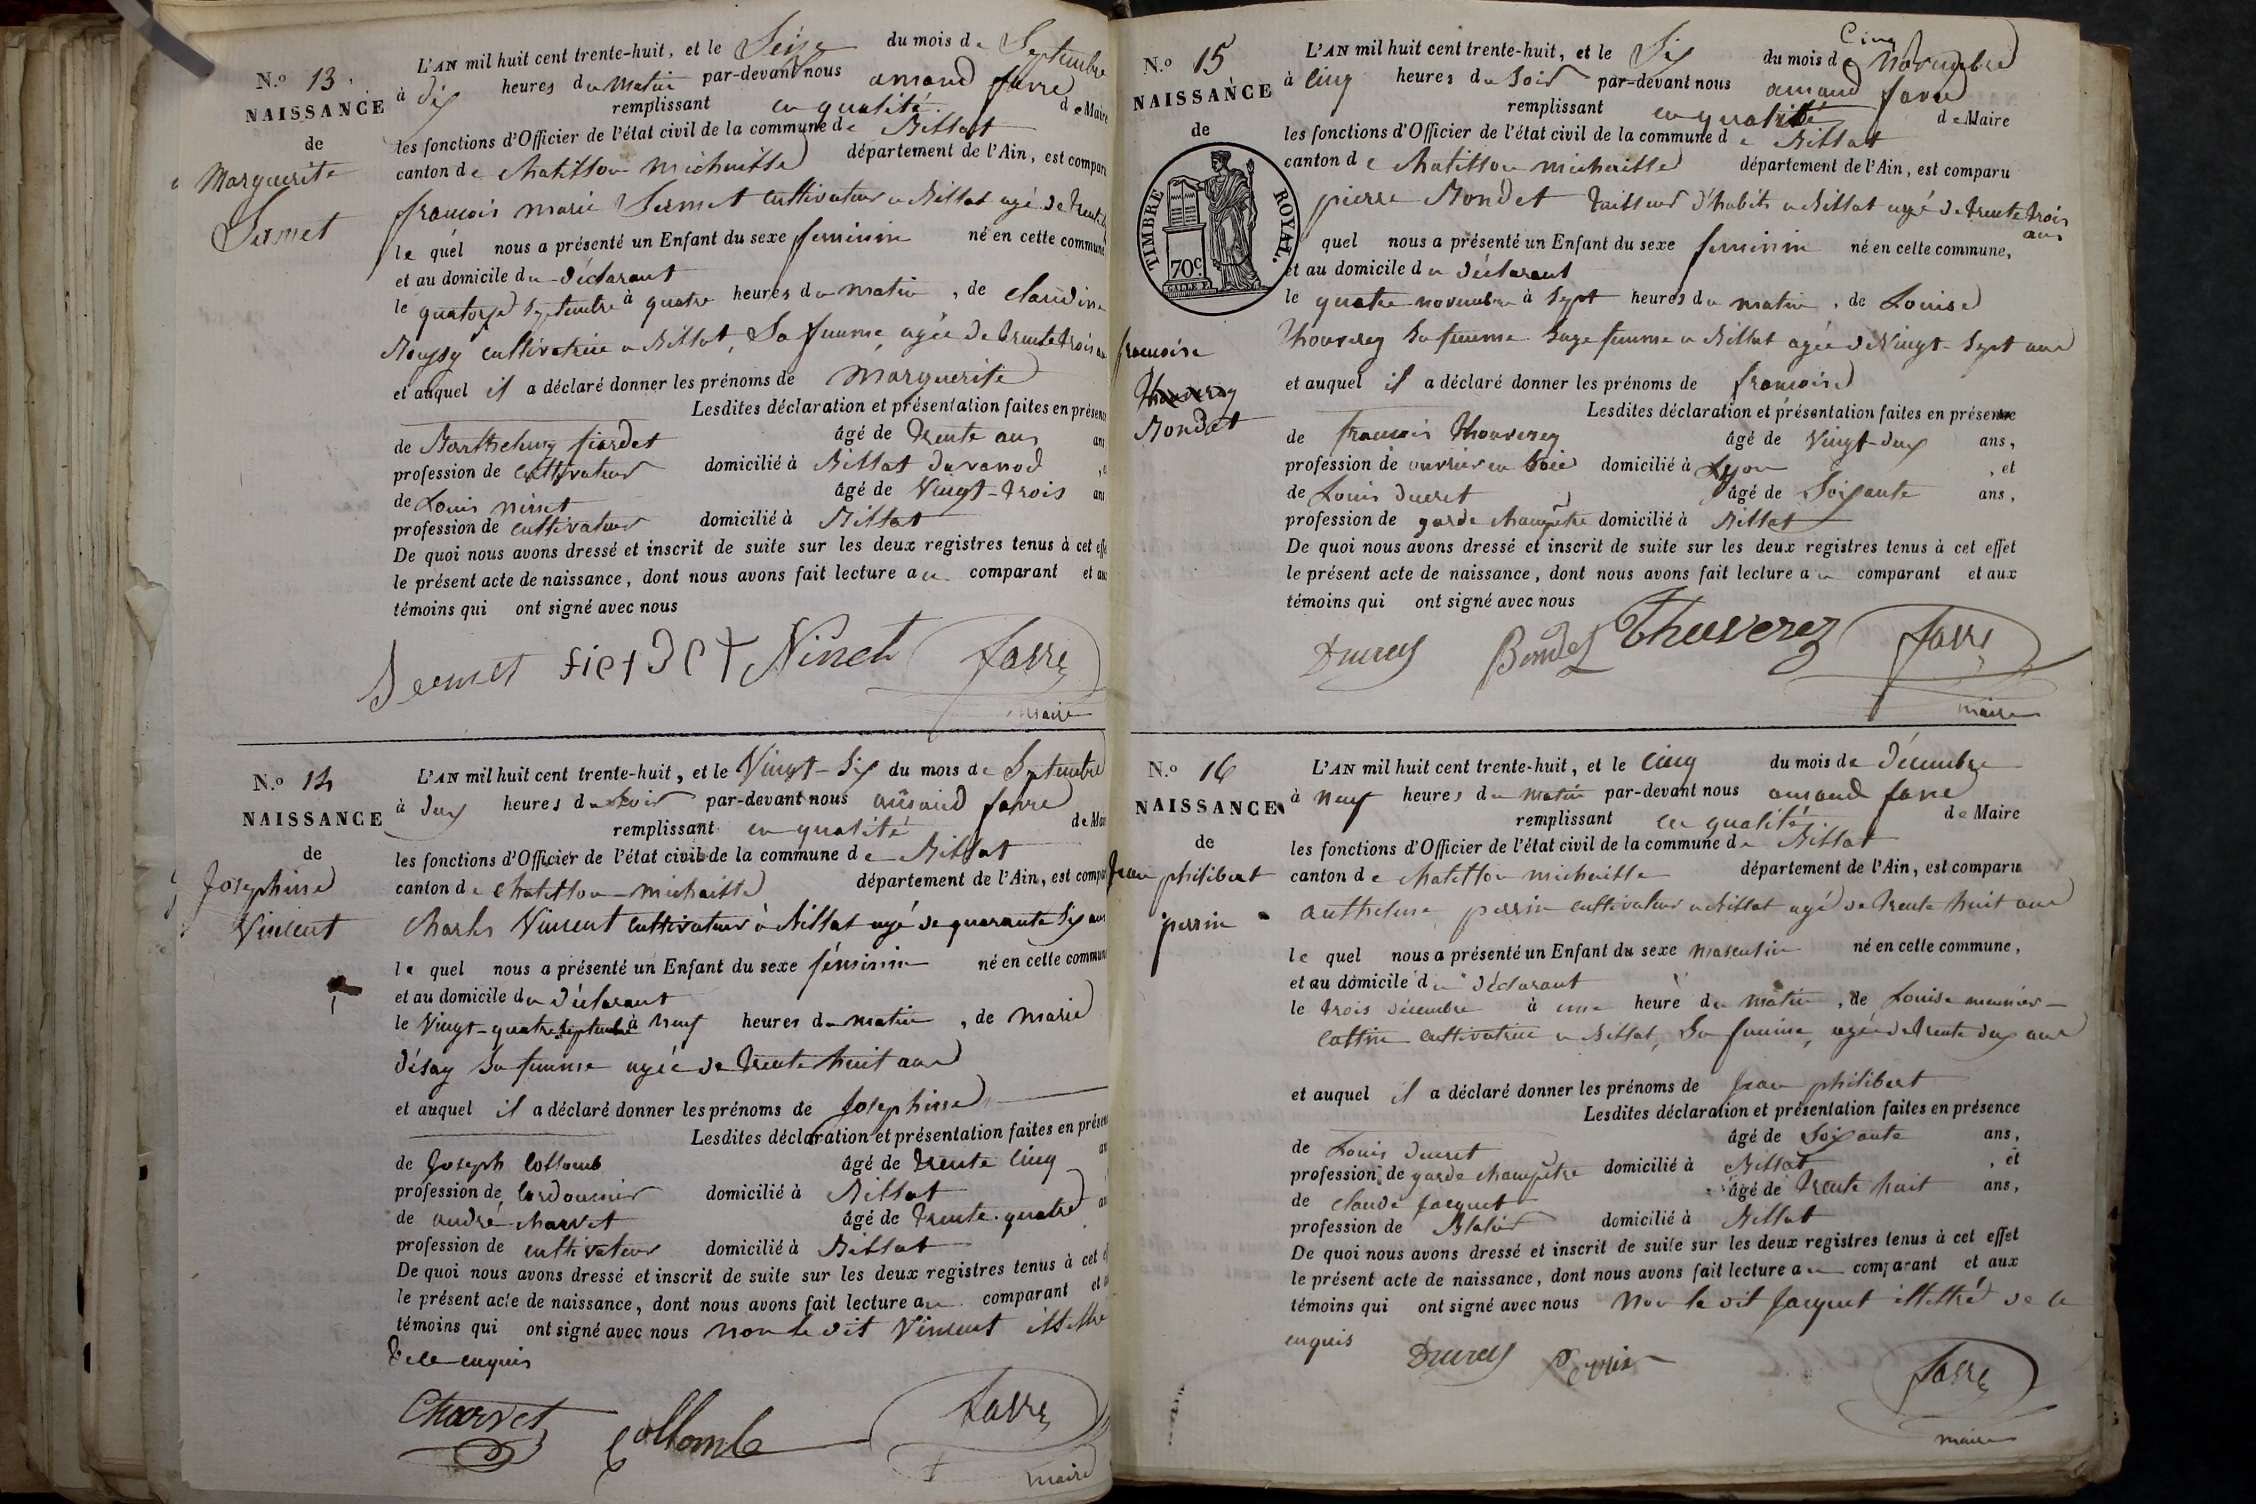 N.º 13.
NAISSANCE
de
Marguerite
Sermet
L'AN mil huit cent trente-huit, et le Seize du mois de Septembre
à dix heures du matin par-devant nous amand favre
remplissant en qualité de Maire
les fonctions d'Officier de l'état civil de la commune de Billiat
canton de Chatillon michaille département de l'Ain, est comparu
francois marie Sermet cultivateur a Billiat agé de trente
le quel nous a présenté un Enfant du sexe feminin né en cette commune
et au domicile du déclarant
le quatorze Septembre à quatre heures du matin, de claudine
cultivatrice a Billiat, Sa femme, agée de trente trois ans
et auquel il a déclaré donner les prénoms de Marguerite
Lesdites déclaration et présentation faites en présence
de Barthelemy fierdet âgé de trente ans ans
profession de cultivateur domicilié à Billiat
de Louis ninet âgé de Vingt-trois ans
profession de cultivateur domicilié à Billiat
De quoi nous avons dressé et inscrit de suite sur les deux registres tenus à cet effet
le présent acte de naissance, dont nous avons fait lecture au comparant et aux
témoins qui ont signé avec nous
Sermet fierdet Ninet favre
maire
N.º 14
NAISSANCE
de
Josephine
Vincent
L'AN mil huit cent trente-huit, et le Vingt-Six du mois de Septembre
à deux heures du Soir par-devant nous amand favre
remplissant en qualité de Maire
les fonctions d'Officier de l'état civil de la commune de Billiat
canton de Chatillon-michaille département de l'Ain, est comparu
Charles Vincent cultivateur à Billiat agé de quarante Six ans
le quel nous a présenté un Enfant du sexe féminin né en cette commune
et au domicile du déclarant
le Vingt-quatre Septembre à neuf heures du matin, de marie
désay Sa femme agée de trente huit ans
et auquel il a déclaré donner les prénoms de Josephine
Lesdites déclaration et présentation faites en présence
de Joseph Collomb âgé de trente cinq ans
profession de cordonnier domicilié à Billiat
de andré charvet âgé de trente-quatre ans
profession de cultivateur domicilié à Billiat
De quoi nous avons dressé et inscrit de suite sur les deux registres tenus à cet
le présent acte de naissance, dont nous avons fait lecture au comparant et
témoins qui ont signé avec nous non le dit Vincent illettré
de ce enquis
Charvet Collomb favre
maire
N.º 15
NAISSANCE
de
TIMBRE ROYAL.
70c.
francoise
Thouverey
Bondet
Cinq
L'AN mil huit cent trente-huit, et le Six du mois de Novembre
à cinq heures du Soir par-devant nous amand favre
remplissant en qualité de Maire
les fonctions d'Officier de l'état civil de la commune de Billiat
canton de Chatillon michaille département de l'Ain, est comparu
pierre Bondet tailleur d'habits a Billiat agé de trente trois
ans
quel nous a présenté un Enfant du sexe feminin né en cette commune,
et au domicile du déclarant
le quatre novembre à Sept heures du matin, de Louise
Thouverey Sa femme Sage femme a Billiat agée de Vingt-Sept ans
et auquel il a déclaré donner les prénoms de francoise
Lesdites déclaration et présentation faites en présence
de francois Thouverey âgé de Vingt-deux ans,
profession de ouvrier en Soie domicilié à Lyon, et
de Louis Ducret âgé de Soixante ans,
profession de garde champêtre domicilié à Billiat
De quoi nous avons dressé et inscrit de suite sur les deux registres tenus à cet effet
le présent acte de naissance, dont nous avons fait lecture au comparant et aux
témoins qui ont signé avec nous
Ducret Bondet Thouverez favre
maire
N.º 16
NAISSANCE
de
Jean philibert
perrin
L'AN mil huit cent trente-huit, et le cinq du mois de décembre
à neuf heures du matin par-devant nous amand favre
remplissant en qualité de Maire
les fonctions d'Officier de l'état civil de la commune de Billiat
canton de Chatillon michaille département de l'Ain, est comparu
anthelme perrin cultivateur a Billiat agé de trente huit ans
le quel nous a présenté un Enfant du sexe masculin né en cette commune,
et au domicile du déclarant
le trois décembre à une heure du matin, de Louise meunier-
cattin cultivatrice a Billiat, Sa femme, agée de trente deux ans
et auquel il a déclaré donner les prénoms de Jean philibert
Lesdites déclaration et présentation faites en présence
de Louis Ducret âgé de Soixante ans,
profession de garde champêtre domicilié à Billiat, et
de Claude Jacquet âgé de trente huit ans,
profession de domicilié à Billiat
De quoi nous avons dressé et inscrit de suite sur les deux registres tenus à cet effet
le présent acte de naissance, dont nous avons fait lecture au comparant et aux
témoins qui ont signé avec nous non le dit Jacquet illettré de ce
enquis
Ducret Perrin favre
maire